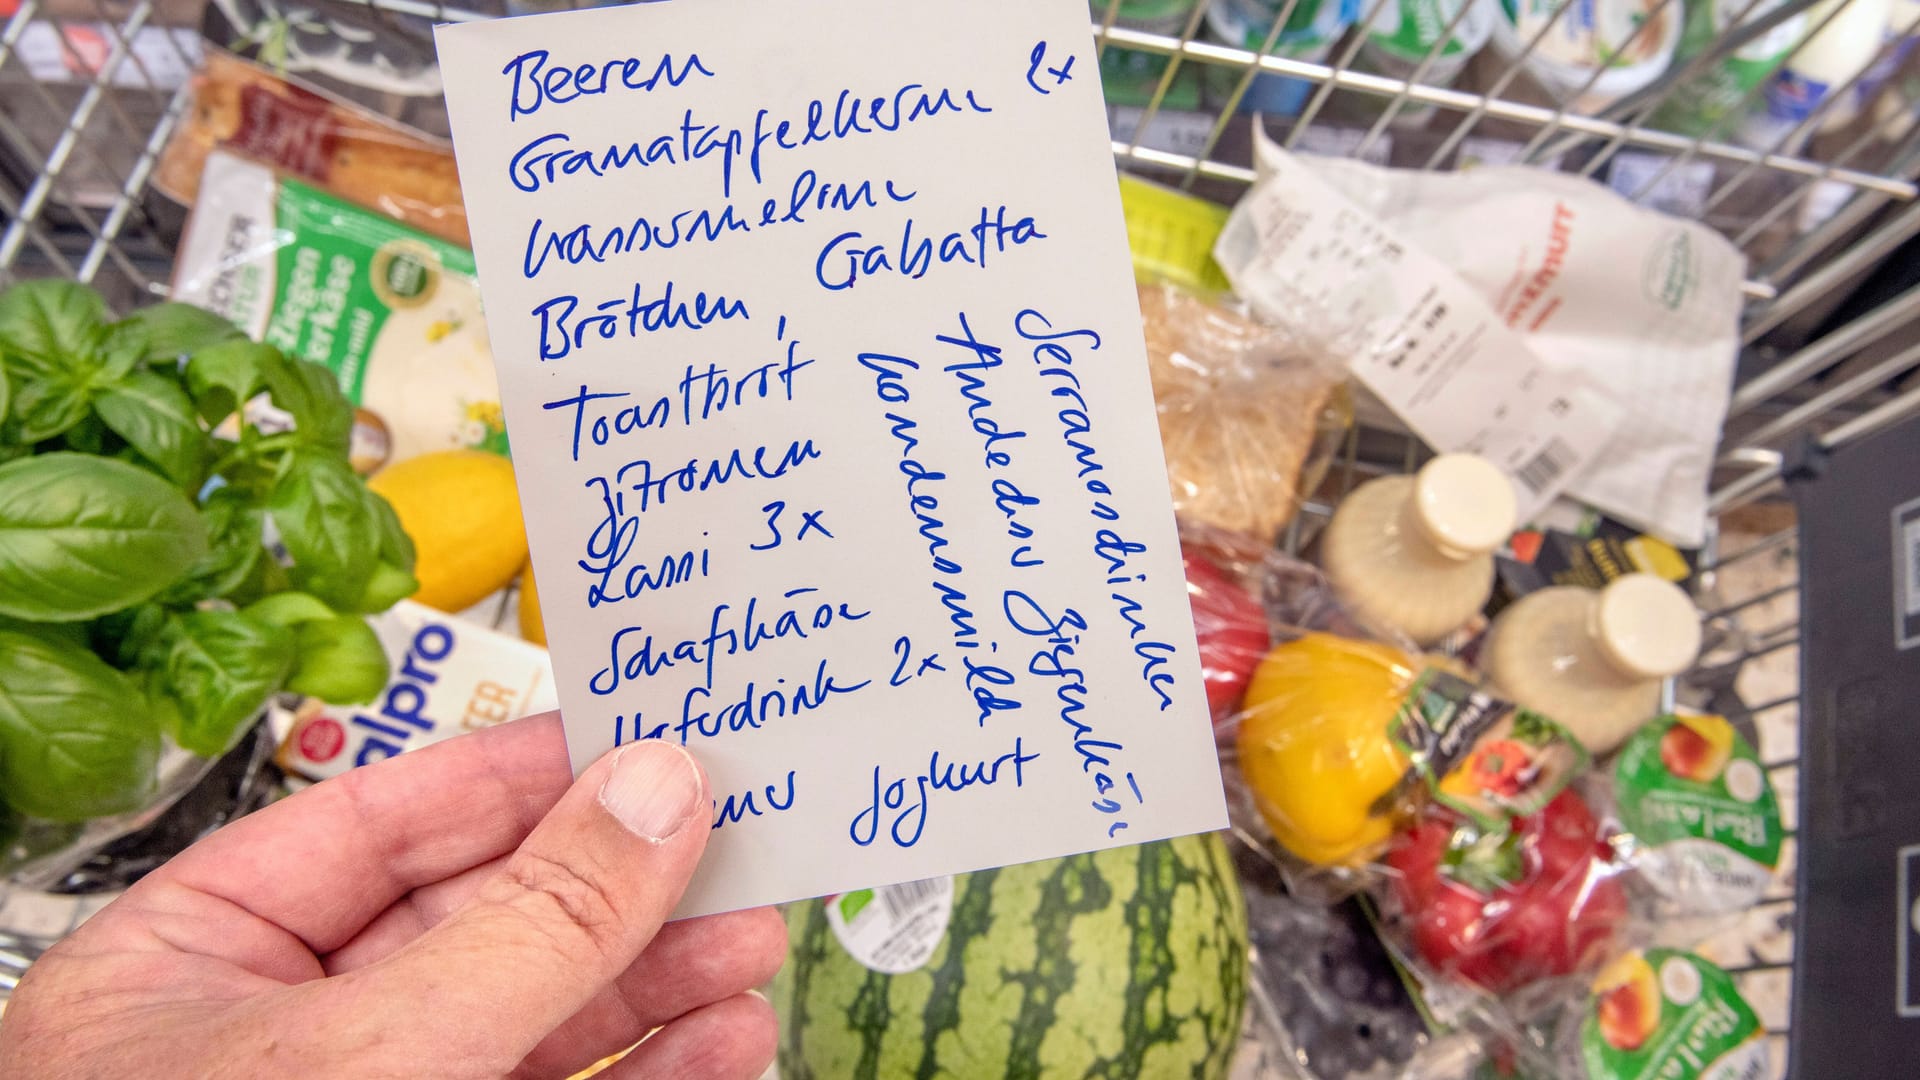 Beeren
Granatapfelkerne 2x
Wassermelone
Brötchen, Gabatta
Toastbrot
Zitronen
Lassi 3x
Schafskäse
Haferdrink 2x
Joghurt
Serranoschinken
Ziegenkäse
Kondensmilch
Ziegen
alpro